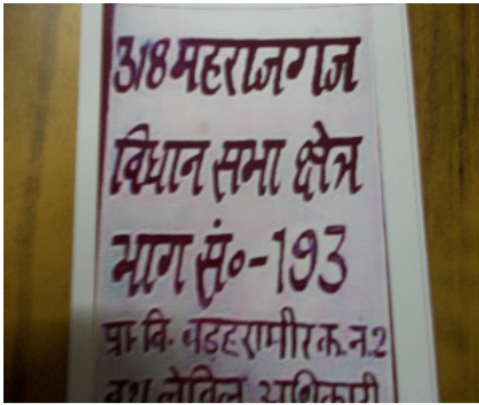 318महराजगज
विधान सभा क्षेत्र
भाग सं०-193
प्रा. वि. बड़हरामीर क. नं.2
बूथ लेविल अधिकारी